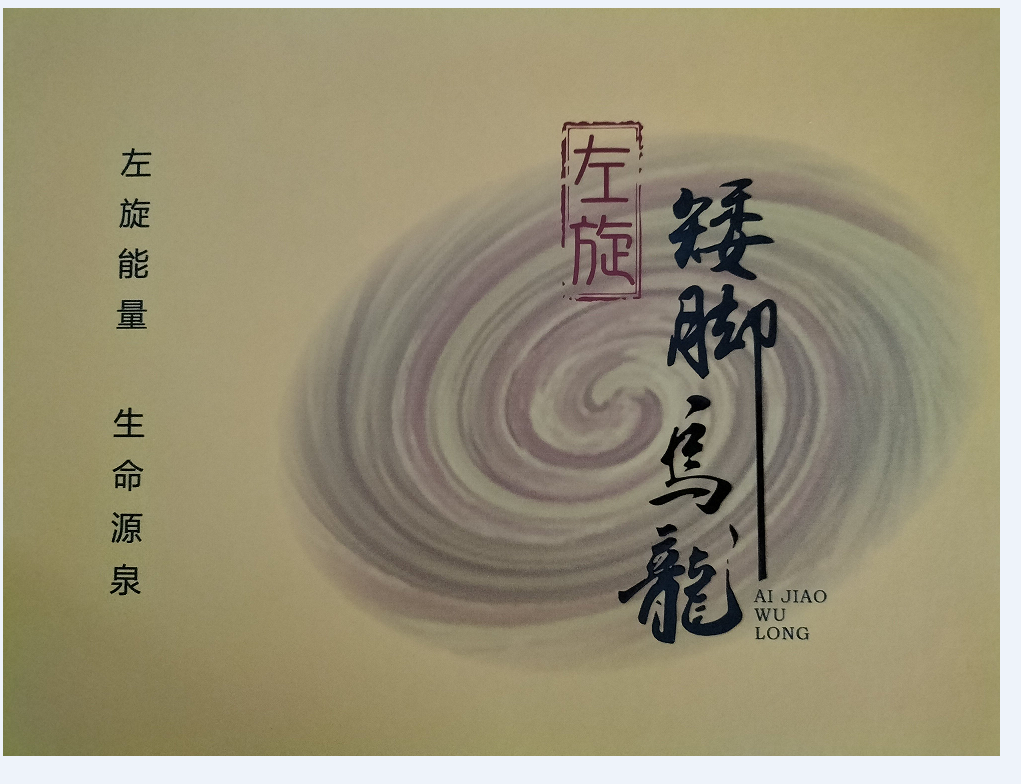 左旋
矮脚烏龍
AI JIAO
WU
LONG
左旋能量 生命源泉